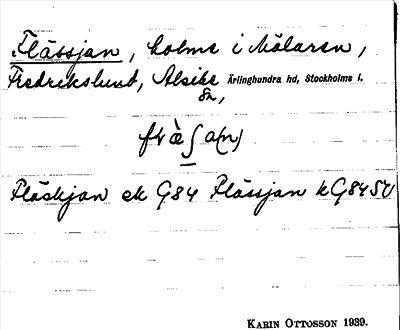 Flässjan, holme i Mälaren,
Fredrikslund, Alsike Ärlinghundra hd, Stockholms l.
sn,
flæ̀ʃa(n)
Fläskjan ek G84 Flässjan k G84 SV
KARIN OTTOSSON 1939.